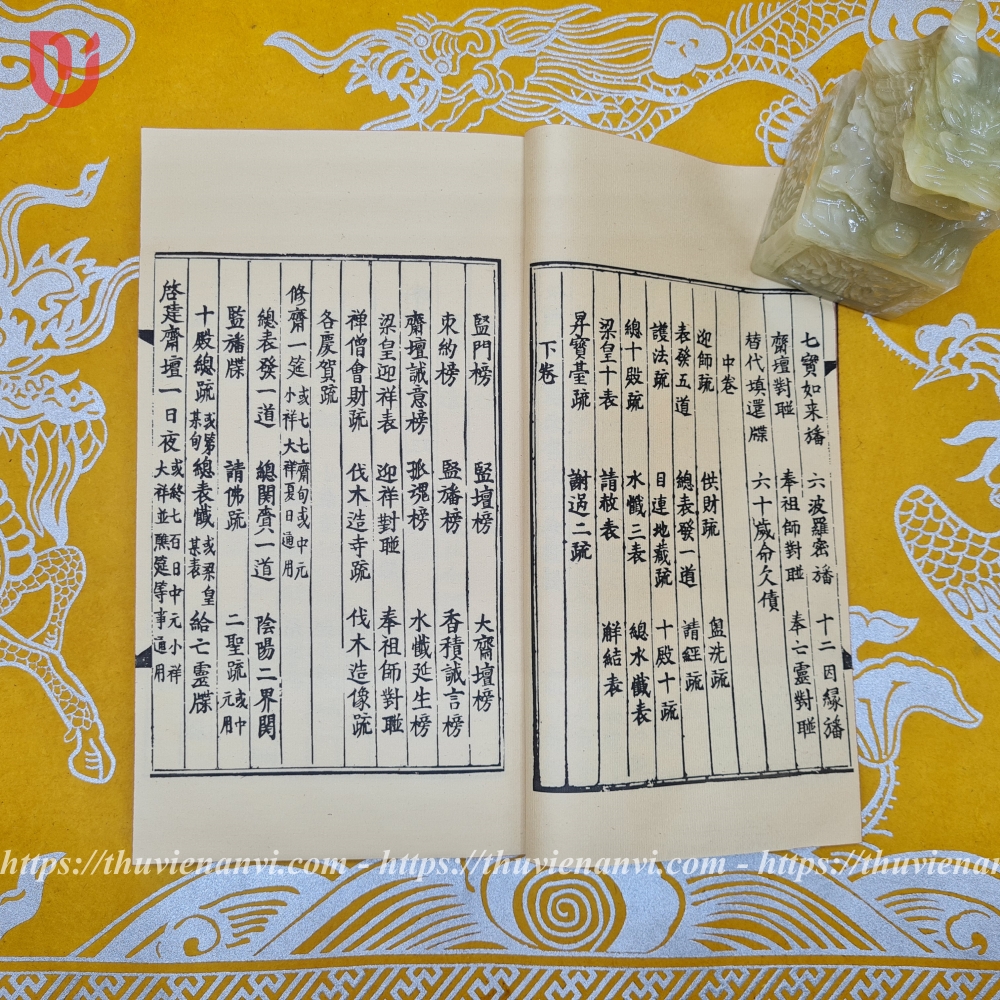 七寶如来旛 六波羅密旛 十二因縁旛
齋壇對聮 奉祖師對聮 奉亡靈對聮
替代填還牒 六十歲命欠債
中卷
迎師疏 供財疏 盥洗疏
表發五道 總表發一道 請經疏
護法疏 目連地藏疏 十殿十疏
總十殿疏 水懺三表 總水懺表
梁皇十表 請赦表 解結表
昇寳臺疏 謝過二疏
下卷
監門榜 監壇榜 大齋壇榜
束約榜 監旛榜 香積誠言榜
齋壇誠意榜 孤魂榜 水懺延生榜
梁皇迎祥表 迎祥對聮 奉祖師對聮
禅僧會財疏 伐木造寺疏 伐木造像疏
各慶賀疏
修齋一筵 或七七齋旬或中元小祥大祥夏日通用
總表發一道 總関賫一道 陰陽二界関
監旛牒 請佛疏 二聖疏 或中元用
十殿總疏 或第某旬 總表懺 或梁皇某表 給亡靈牒
啓建齋壇一日夜 或終七百日中元小祥大祥並醮筵等事通用
https://thuvienanvi.com - https://thuvienanvi.com - https://thuvienanvi